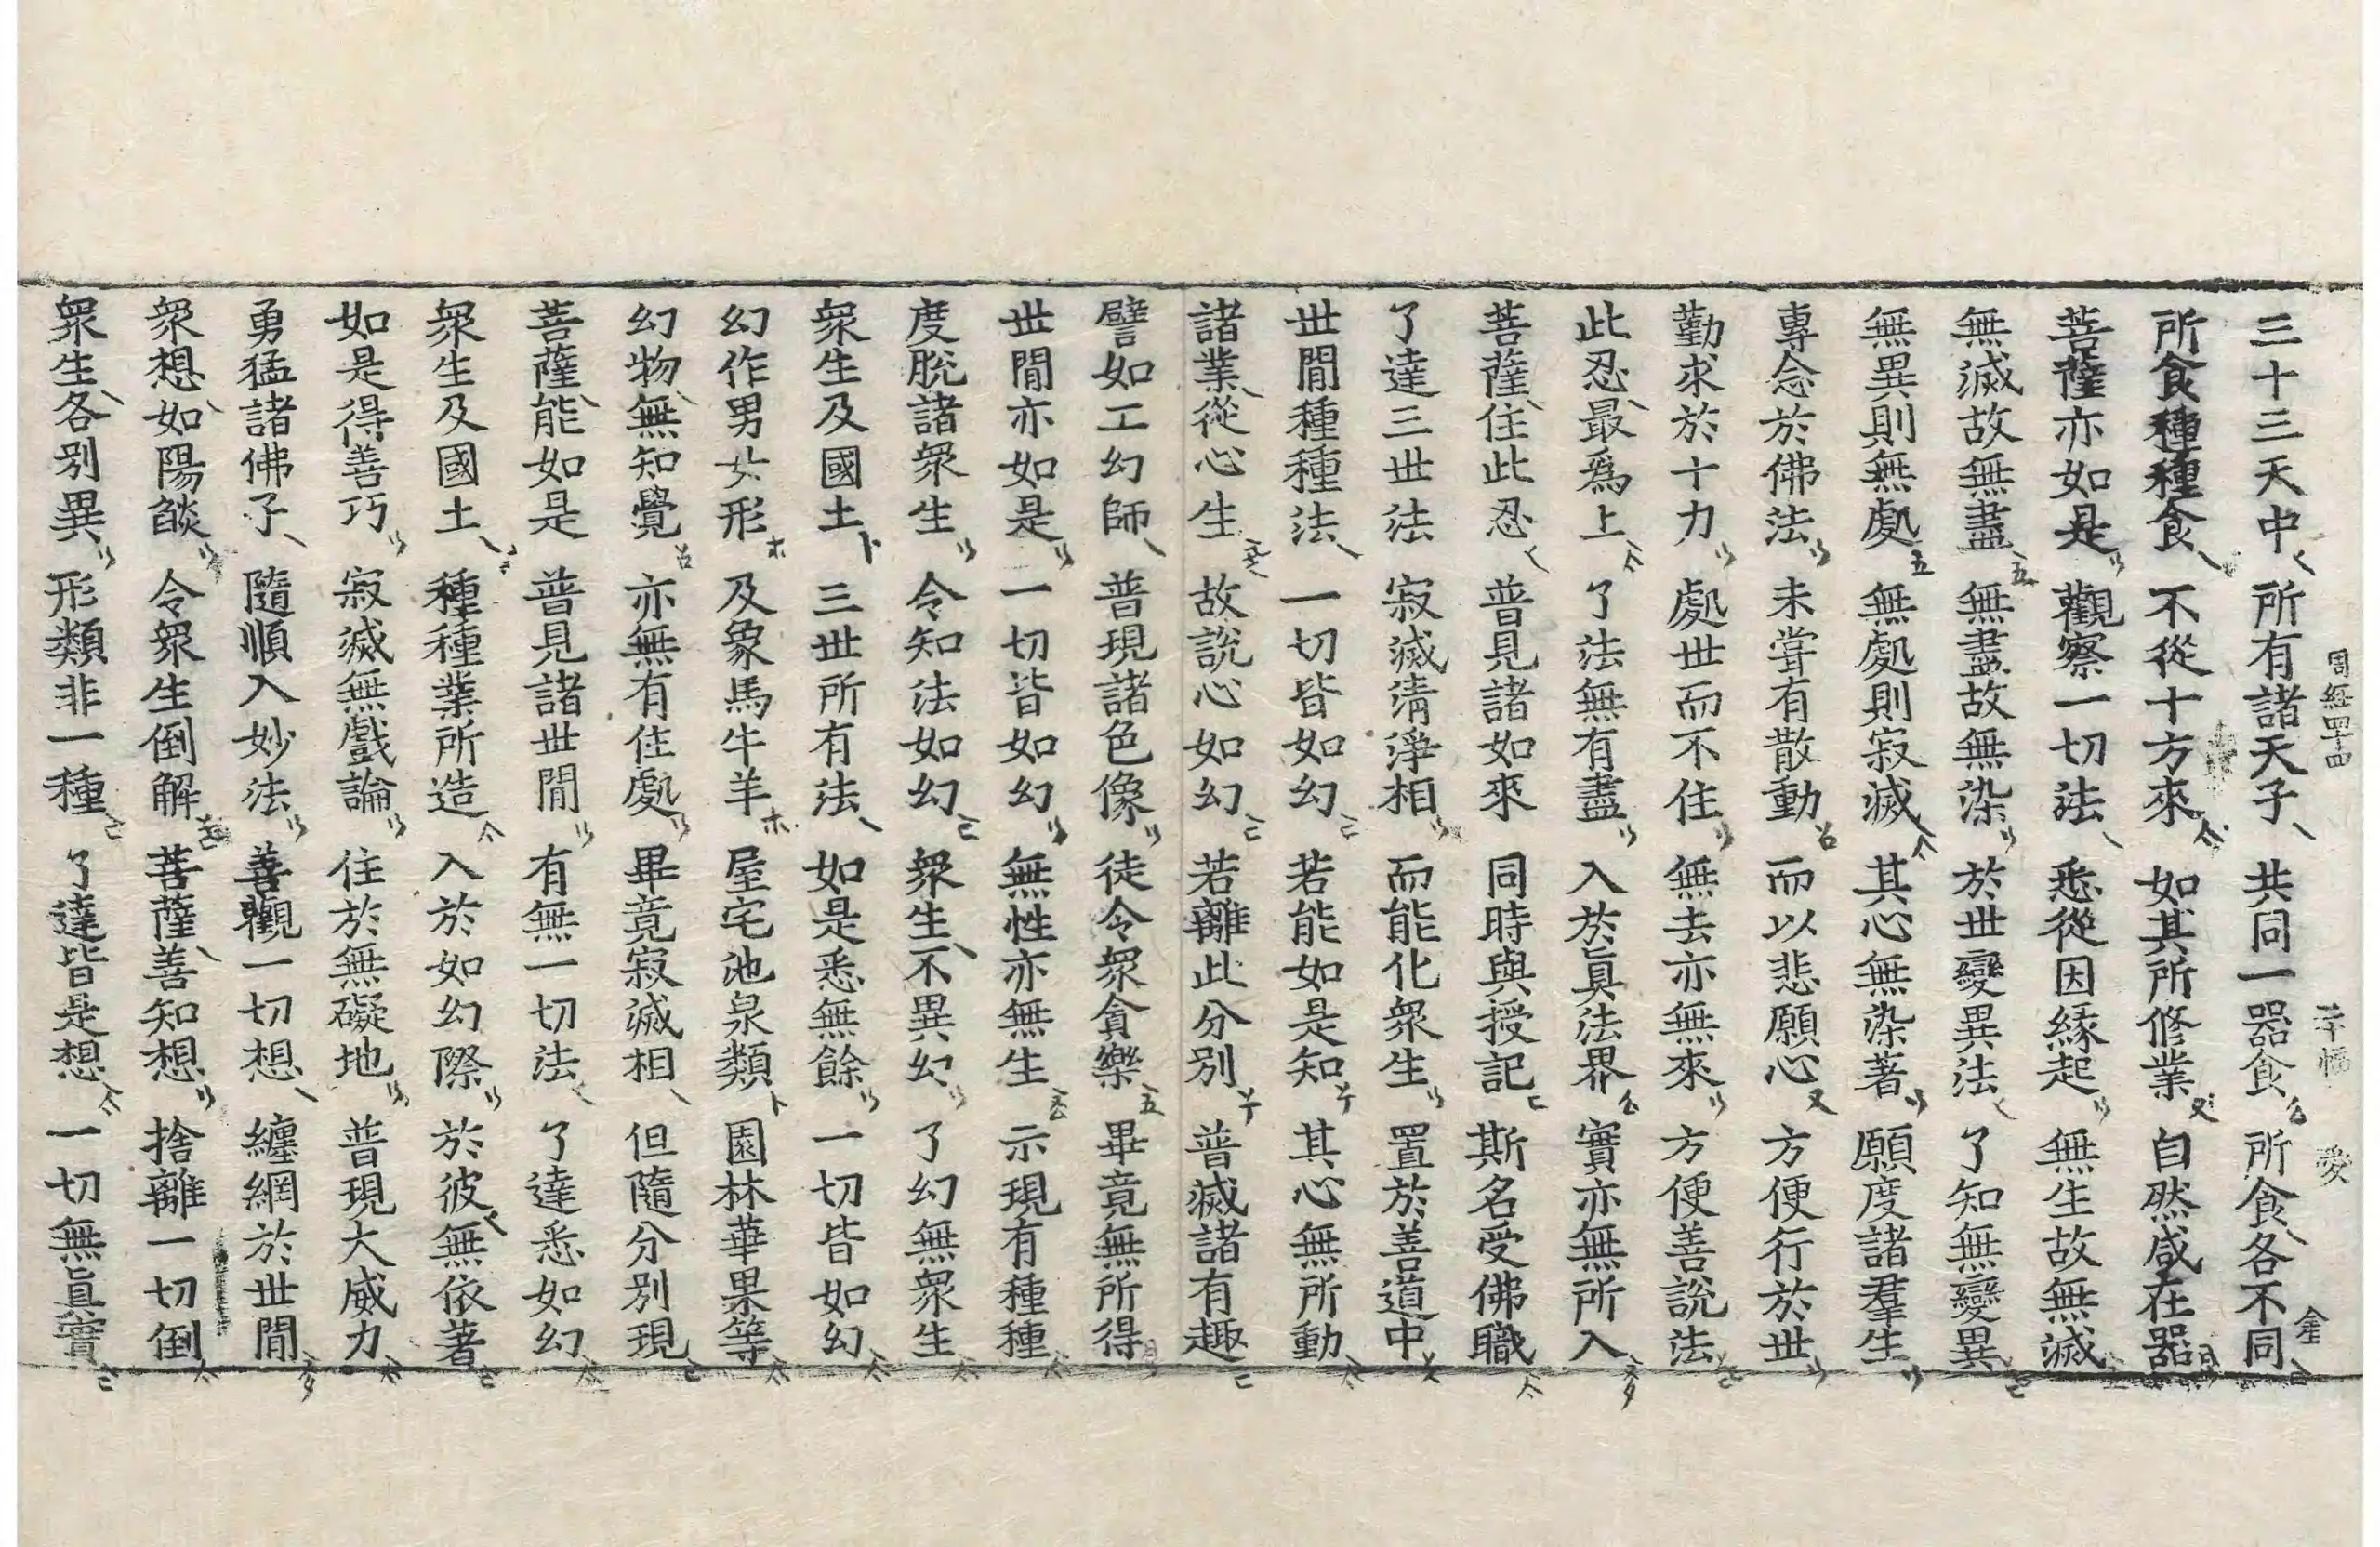 三十三天中 所有諸天子 共同一器食 所食各不同
所食種種食 不從十方來 如其所修業 自然咸在器
菩薩亦如是 觀察一切法 悉從因緣起 無生故無滅
無滅故無盡 無盡故無染 於世變異法 了知無變異
無異則無處 無處則寂滅 其心無染著 願度諸羣生
專念於佛法 未嘗有散動 而以悲願心 方便行於世
勤求於十力 處世而不住 無去亦無來 方便善說法
此忍最爲上 了法無有盡 入於眞法界 實亦無所入
菩薩住此忍 普見諸如來 同時與授記 斯名受佛職
了達三世法 寂滅清淨相 而能化衆生 置於善道中
世間種種法 一切皆如幻 若能如是知 其心無所動
諸業從心生 故說心如幻 若離此分別 普滅諸有趣
譬如工幻師 普現諸色像 徒令衆貪樂 畢竟無所得
世間亦如是 一切皆如幻 無性亦無生 示現有種種
度脫諸衆生 令知法如幻 衆生不異幻 了幻無衆生
衆生及國土 三世所有法 如是悉無餘 一切皆如幻
幻作男女形 及象馬牛羊 屋宅池泉類 園林華果等
幻物無知覺 亦無有住處 畢竟寂滅相 但隨分別現
菩薩能如是 普見諸世間 有無一切法 了達悉如幻
衆生及國土 種種業所造 入於如幻際 於彼無依著
如是得善巧 寂滅無戲論 住於無礙地 普現大威力
勇猛諸佛子 隨順入妙法 善觀一切想 纏網於世間
衆想如陽燄 令衆生倒解 菩薩善知想 捨離一切倒
衆生各別異 形類非一種 了達皆是想 一切無眞實